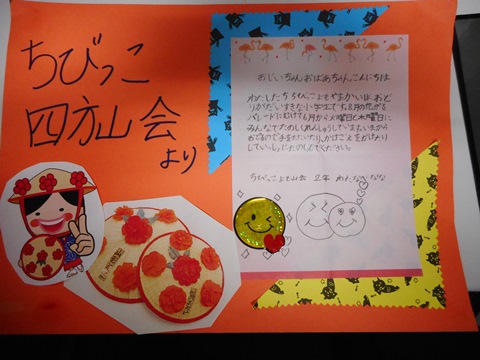 ちびっこ
四方山会
より
おじいちゃんおばあちゃんこんにちは
わたしたちちびっこよもやまかいは、おど
りがだいすきな小学生です。8月の花がさ
パレードにむけて6月から火曜日と木曜日に
みんなでたのしくれんしゅうしています。いまから
おどるので手をたたいたり、かけごえをかけたり
していっしょにたのしんでください。
ちびっこよも山会 2年